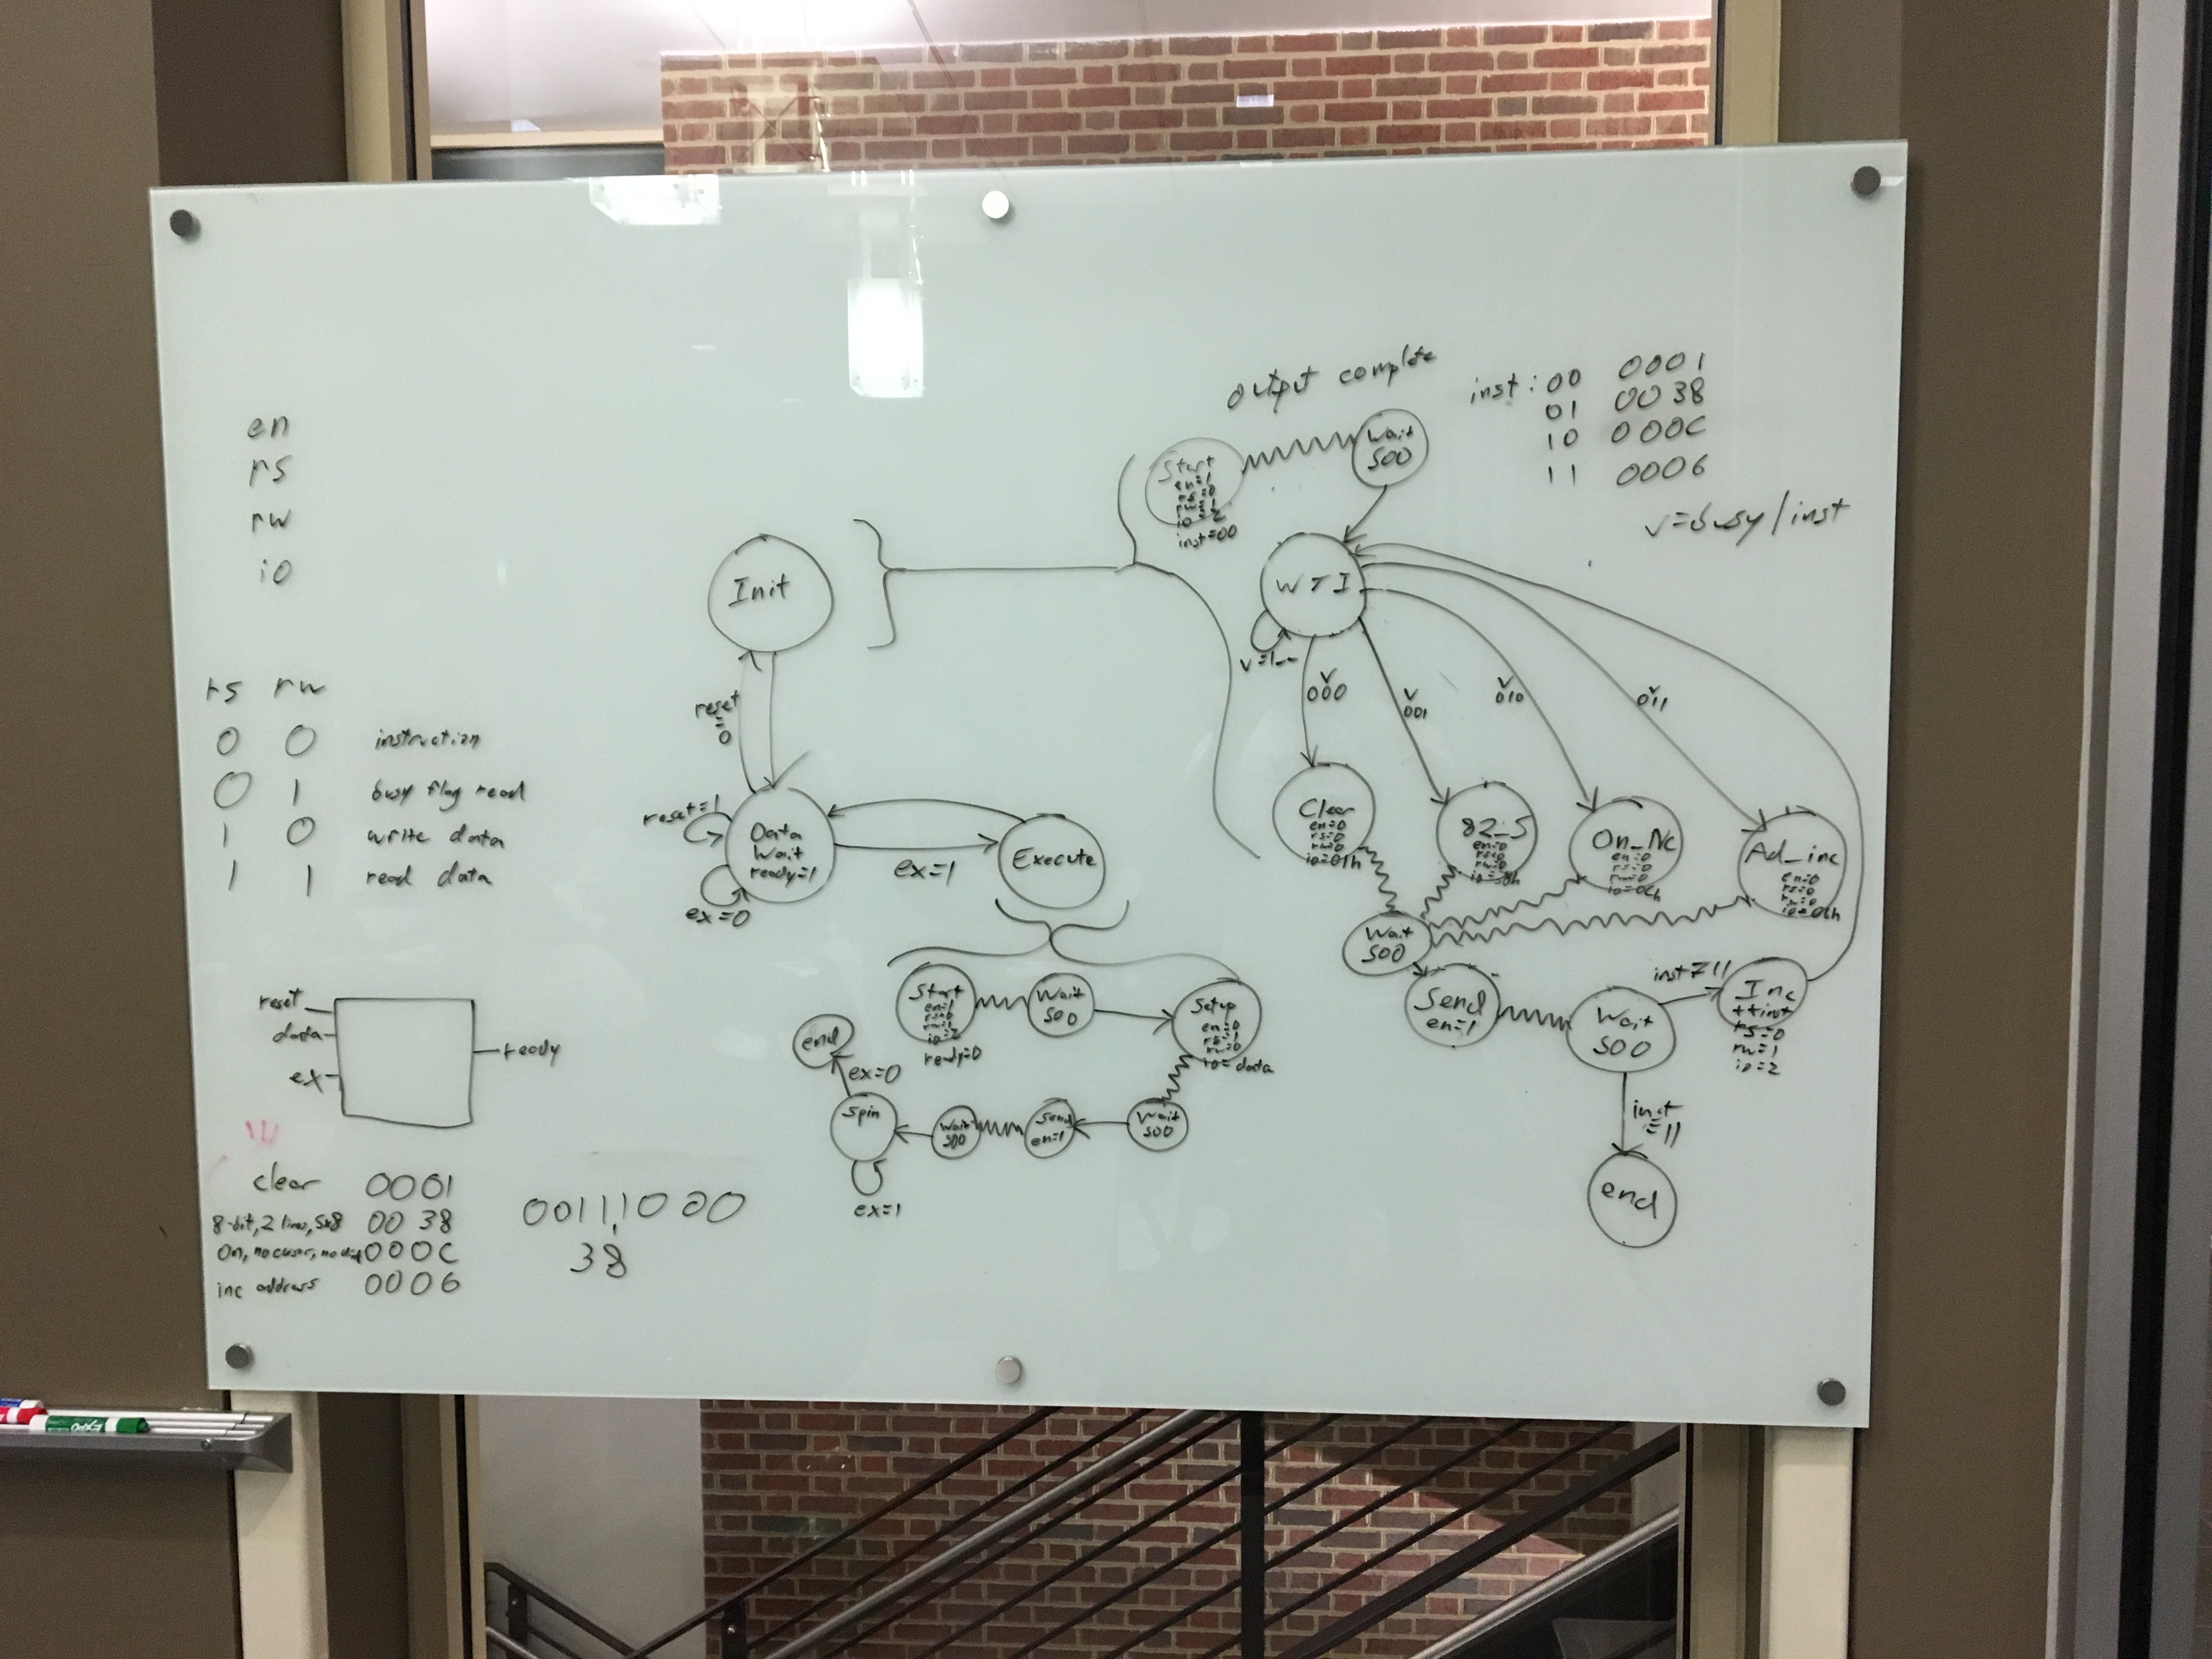 en
rs
rw
io
rs rw
0 0 instruction
0 1 busy flag read
1 0 write data
1 1 read data
reset
data
ex
ready
clear 0001
8-bit, 2 lines, 5x8 00 38
On, no cursor, no 000C
inc address 0006
00111000
38
Init
reset
=
0
reset=1
Data
Wait
ready=1
ex=0
ex=1
Execute
Start
en=1
rs=0
rw=1
io=Z
ready=0
Wait
500
Setup
en=0
rs=1
rw=0
io=data
Wait
500
Send
en=1
Wait
500
Spin
ex=1
ex=0
end
output complete
Start
en=1
rs=0
rw=1
io=Z
inst=00
Wait
500
inst: 00 0001
01 00 38
10 000C
11 0006
v=busy/inst
WTI
v=1--
v
000
v
001
v
010
v
011
Clear
en=0
rs=0
rw=0
io=01h
82_5
en=0
rs=0
rw=0
io=38h
On_Nc
en=0
rs=0
rw=0
io=0Ch
Ad_inc
en=0
rs=0
rw=0
io=06h
Wait
500
Send
en=1
Wait
500
inst≠11
Inc
++inst
rs=0
rw=1
io=Z
inst
=11
end
EXPO